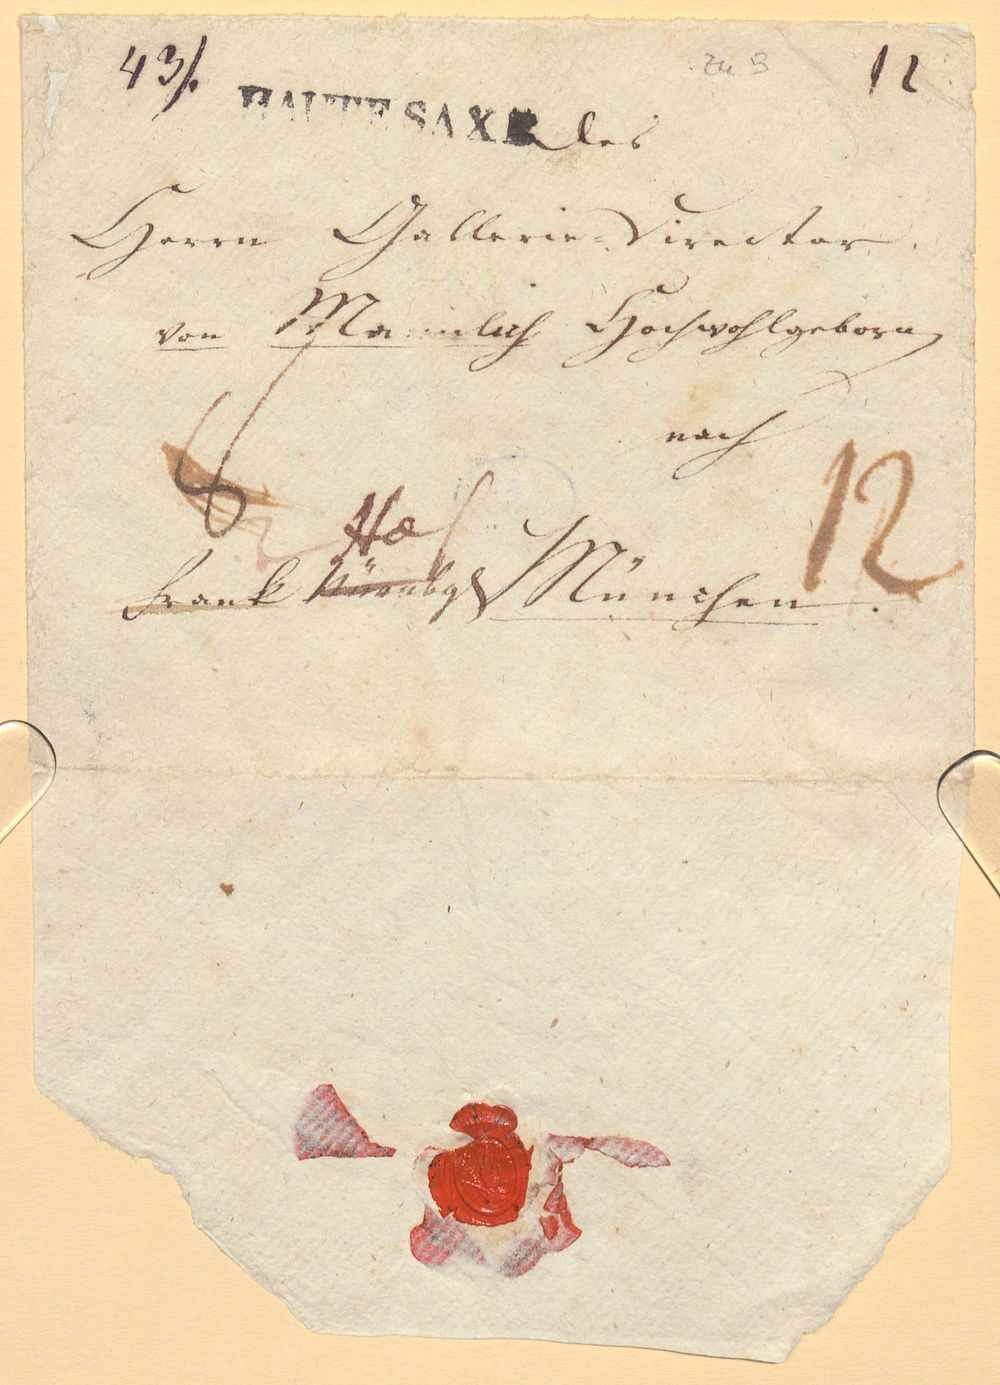 43/. zu 3 12
HAUTE SAXE des
Herrn Gallerie-Director
von Mannlich Hochwohlgeborn
nach
12
Hof
frank Nürnbg München.